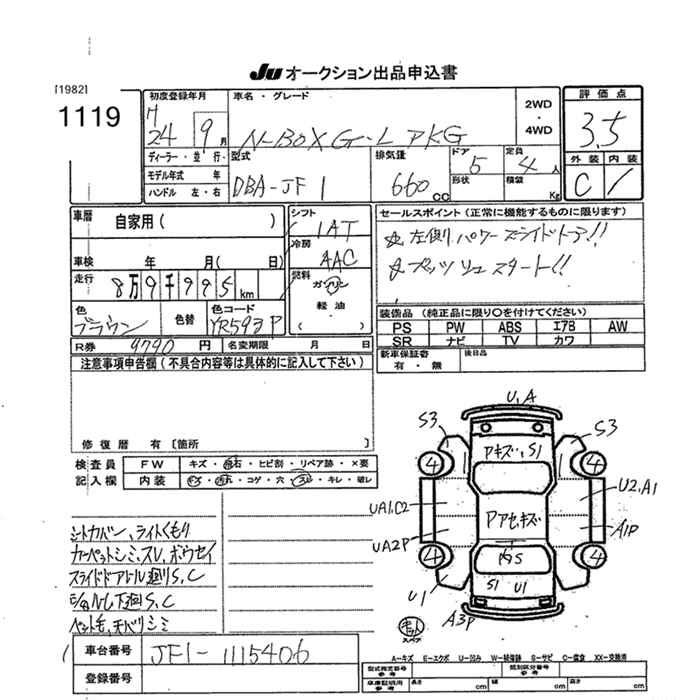 Ju オークション出品申込書
[1982]
1119
初度登録年月
H
24 9月
車名・グレード
N-BOX G-L PKG
2WD
・
4WD
評価点
3.5
外装 内装
C
ディーラー・並行
モデル年式 年
ハンドル 左・右
型式
DBA-JF1
排気量
660cc
ドア
5
形状
定員
4人
積載
Kg
車歴 自家用( )
車検 年 月( 日)
走行
8万9千995km
色
ブラウン
色替
色コード
YR593P
シフト
IAT
冷房
AAC
燃料
ガソリン
軽油
( )
セールスポイント(正常に機能するものに限ります)
☆ 左側りパワースライドドア!!
☆ プッツシュスタート!!
装備品(純正品に限り○を付けてください)
PS PW ABS エアB AW
SR ナビ TV カワ
新車保証書
有・無
後日品
R券 9790円 名変期限 月 日
注意事項申告欄(不具合内容等は具体的に記入して下さい)
修復歴 有〔箇所 〕
検査員
記入欄
FW キズ・飛石・ヒビ割・リペア跡・×要
内装 キズ・汚れ・コゲ・穴・スレ・キレ・破レ
シートカバン、ライトくもり
カーペットシミ、スレ、ホウセイ
スライドドアトル廻りS、C
下廻S、C
ペット毛、チバリシミ
U,A
S3
S3
アキズ、S1
4
4
UA1,C2
U2,A1
Pアセ、キズ
UA2P
A1P
4
4
内S
S1 U1
U1
A3P
スペア
車台番号 JF1-1115406
登録番号
A-キズ E-エクボ U-凹み W-補修跡 S-サビ C-腐食 XX-交換済
型式指定番号
参考
類別区分番号
参考
車庫証明用
参考
長さ cm 幅 cm 高さ cm